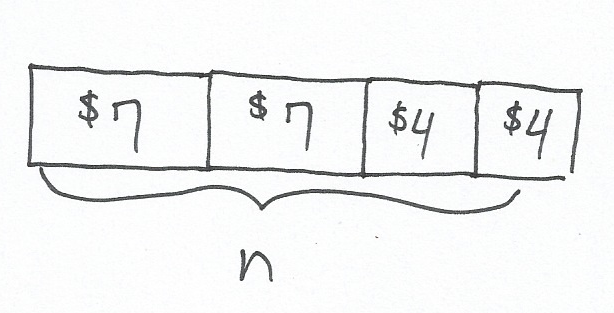 $7 $7 $4 $4
n